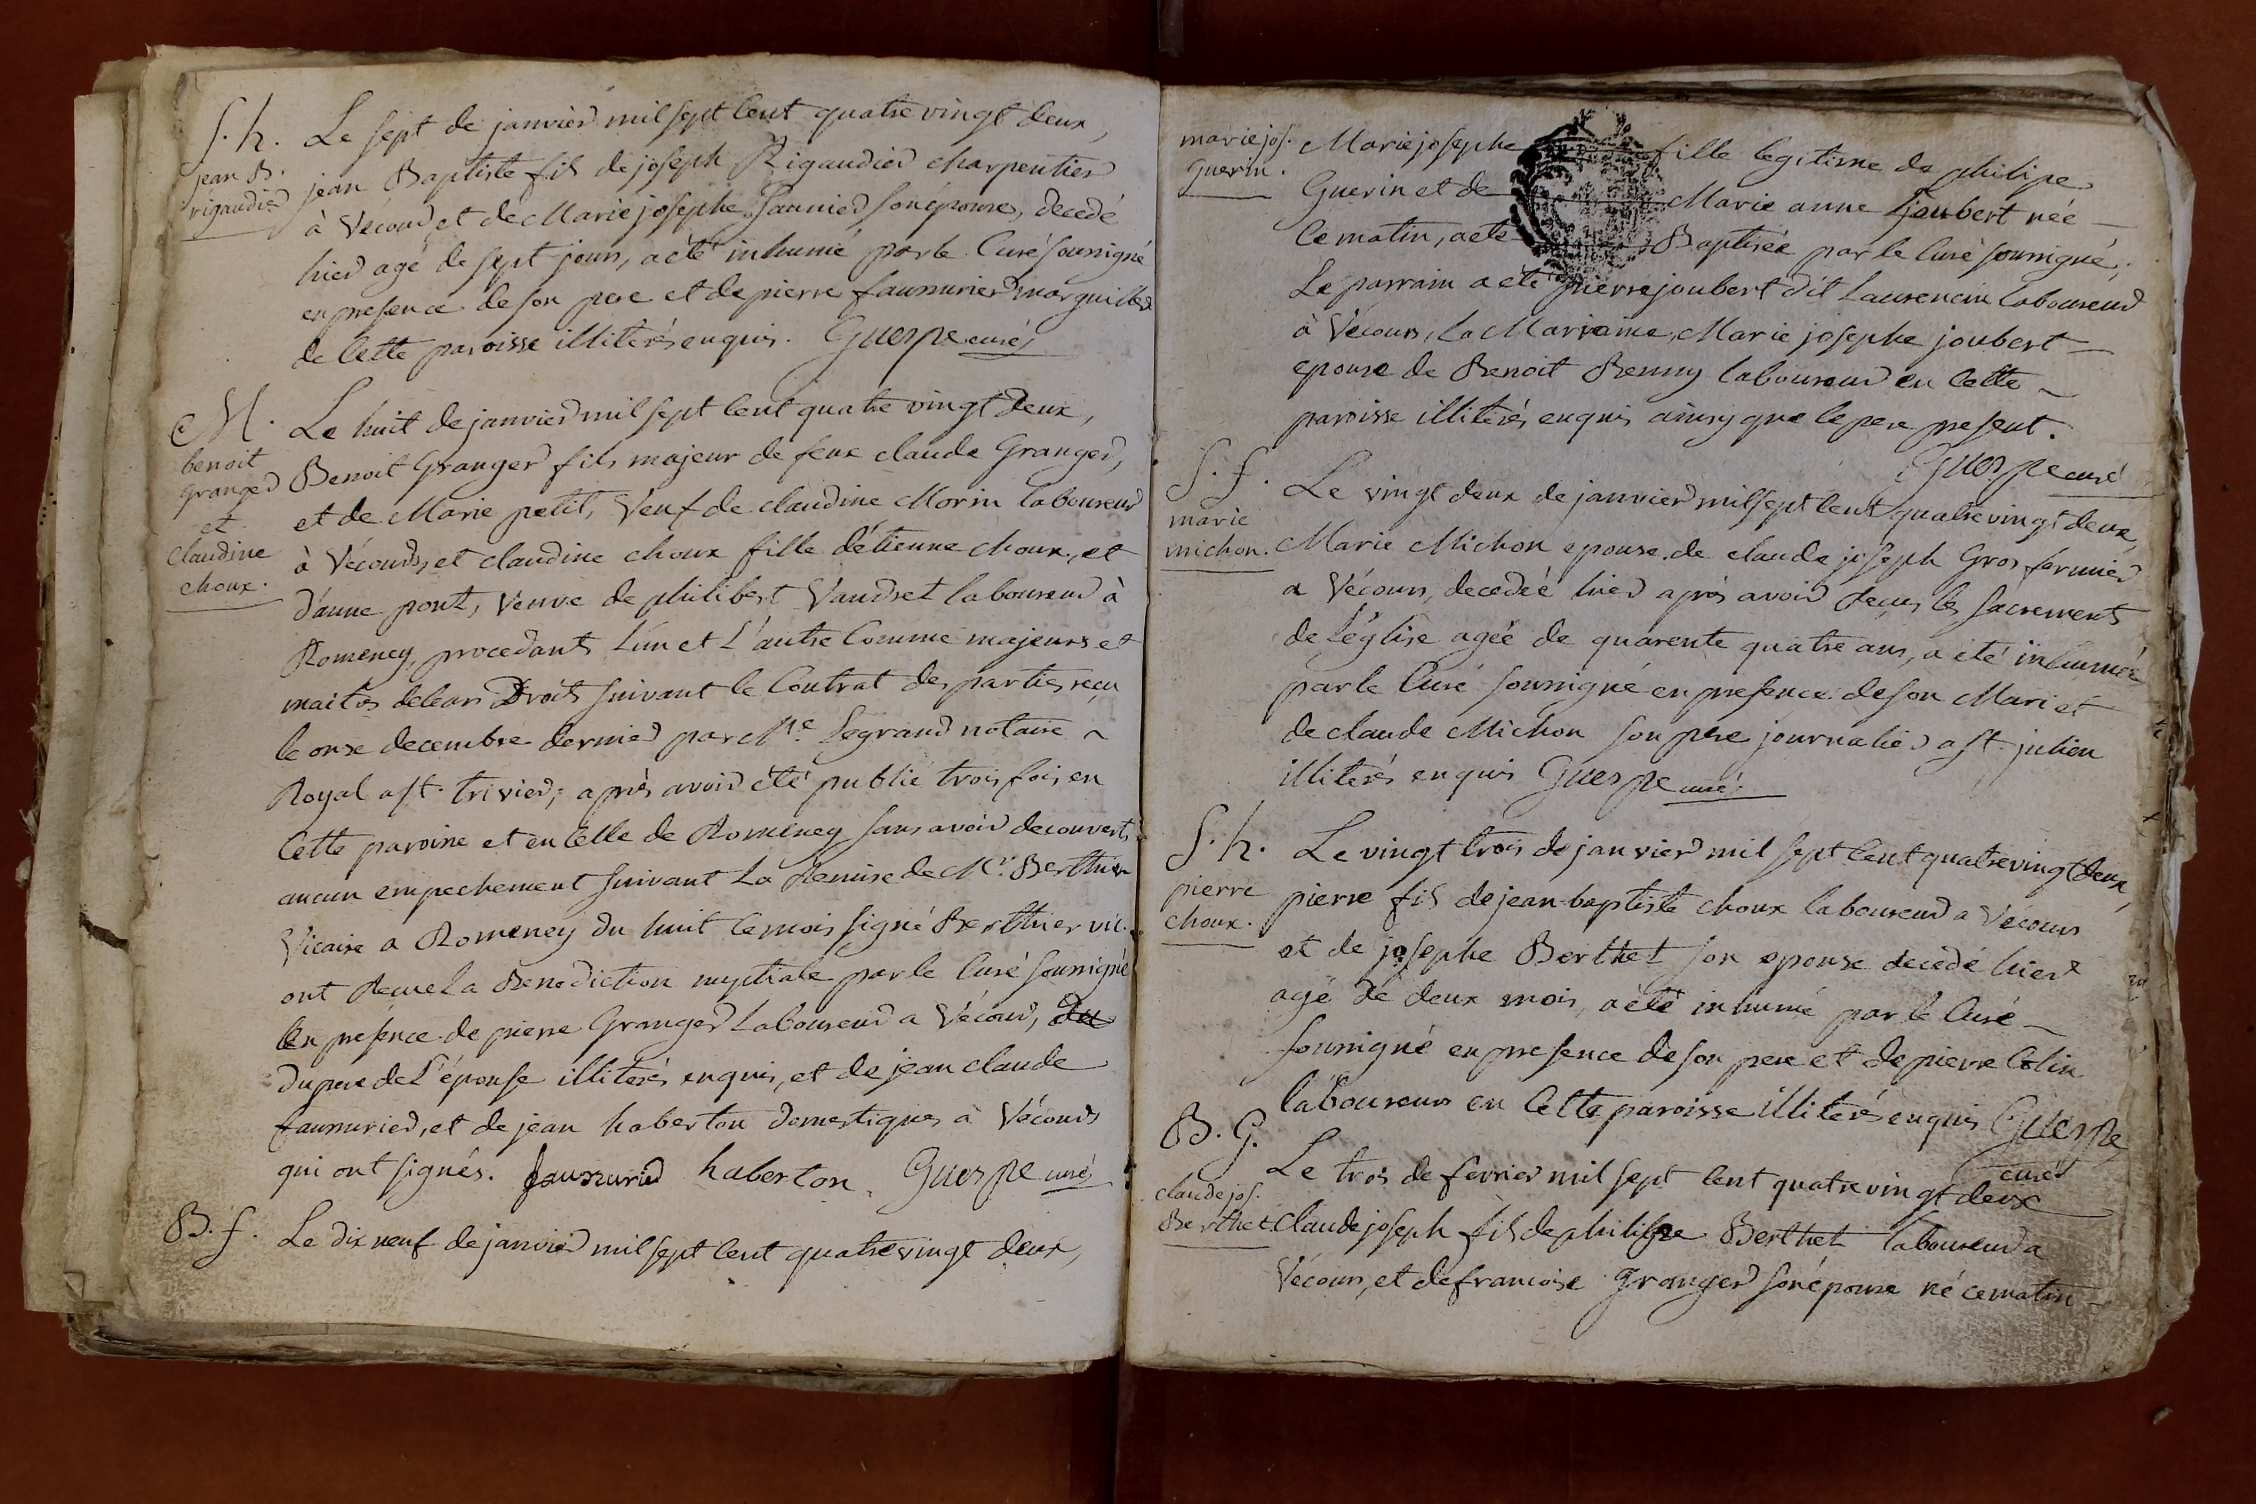 S. h. Le sept de janvier mil sept cent quatre vingt deux,
jean B. rigaudier jean Baptiste fils de joseph Rigaudier charpentier
à Vécour et de Marie josephe Saunier son épouse, decedé
hier agé de sept jours, a été inhumé par le Curé soussigné
en presence de son pere et de pierre faussurier marguillier
de cette paroisse illiterés enquis. Guerpe curé
M. Le huit de janvier mil sept cent quatre vingt deux,
benoit granger et claudine choux. Benoit Granger fils majeur de feux claude Granger,
et de Marie petit, Veuf de claudine Morin laboureur
à Vécours, et claudine choux fille d'étienne choux, et
d'anne pont, Veuve de philibert Vaudret laboureur à
Romeney, procedants l'un et L'autre Comme majeurs et
maitres de leurs Droits suivant le Contrat des parties reçu
le onze decembre dernier par Me. Legrand notaire
Royal a st. trivier; après avoir été publié trois fois en
Cette paroisse et en Celle de Romeney sans avoir decouvert
aucun empechement suivant La Remise de Mr. Berthier
Vicaire a Romeney du huit ce mois signé Berthier vic.
ont Recue La Benediction nuptiale par le Curé soussigné
En presence de pierre Granger Laboureur a Vécour, du
du pere de L'épouse illiterés enquis, et de jean claude
faussurier, et de jean haberton domestiques à Vécours
qui ont signés. faussurier haberton. Guerpe curé
B. f. Le dix neuf de janvier mil sept cent quatre vingt deux,
marie jos. Guerin. Marie josephe fille legitime de philipe
Guerin et de Marie anne joubert née
Ce matin, a été Baptisée par le Curé soussigné;
Le parrain a été pierre joubert dit Laurencin laboureur
à Vécours, La Marraine, Marie josephe joubert
epouse de Benoit Benny laboureur en Cette
paroisse illiterés enquis ainsy que le pere present.
Guerpe curé
S. f. Le vingt deux de janvier mil sept cent quatre vingt deux,
marie michon. Marie Michon epouse de claude joseph Gros fermier
a Vécours, decedéé hier après avoir Reçus les sacrements
de L'église agéé de quarente quatre ans, a été inhuméé
par le Curé soussigné en presence de son Mari et
de claude Michon son pere journalier a st. julien
illiterés enquis Guerpe curé.
S. h. Le vingt trois de janvier mil sept cent quatre vingt deux,
pierre choux. pierre fils de jean baptiste choux laboureur a Vécours
et de josephe Berthet son epouse decedé hier
agé de deux mois, a été inhumé par le Curé
soussigné en presence de son pere et de pierre Colin
laboureurs en Cette paroisse illiterés enquis Guerpe
curé
B. G. Le trois de fevrier mil sept cent quatre vingt deux
claude jos. Berthet. Claude joseph fils de philipe Berthet laboureur a
Vécours, et de francoise Granger son épouse né ce matin